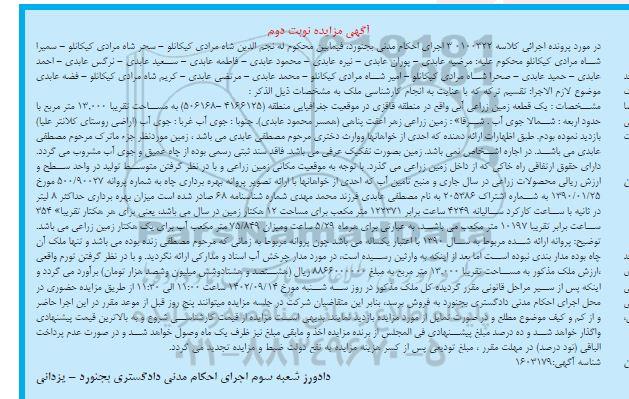 آگهی مزایده نوبت دوم
در مورد پرونده اجرائی کلاسه ۰۱۰۰۳۳۲ ۳ اجرای احکام مدنی بجنورد، فیمابین محکوم له نجم الدین شاه مرادی کیکانلو – سحر شاه مرادی کیکانلو – سمیرا
شاه مرادی کیکانلو محکوم علیه: مرضیه عابدی – پوران عابدی – نیره عابدی – محمود عابدی – فاطمه عابدی – سعید عابدی – نرگس عابدی – احمد
عابدی – حمید عابدی – صحرا شاه مرادی کیکانلو – امیر شاه مرادی کیکانلو – محمد عابدی – مرتضی عابدی – کریم شاه مرادی کیکانلو – فضه عابدی
موضوع لازم الاجرا: تقسیم ترکه که با عنایت به انجام کارشناسی ملک به مشخصات ذیل الذکر :
مشخصات : یک قطعه زمین زراعی آبی واقع در منطقه قاقزی در موقعیت جغرافیایی منطقه (۴۱۶۶۱۲۵– ۵۰۶۱۶۸) به مساحت تقریبا ۱۳,۰۰۰ متر مربع با
حدود اربعه : شمالا: جوی آب . شرقا» : زمین زراعی زهر اعفت پناهی (همسر محمود عابدی). جنوبا : جوی آب غربا : جوی آب (اراضی روستای کلانتر علیا)
بازدید نموده بودم. طبق اظهارات ارائه دهنده که احدی از خواهانها ووارث دختری مرحوم مصطفی عابدی می باشد ، زمین موردنظر جزء ماترک مرحوم مصطفی
عابدی می باشد. در اجاره اشخاص نمی باشد. زمین بصورت تفکیک عرفی می باشد. فاقد سند ثبتی رسمی بوده از چاه عمیق و جوی آب مشروب می گردد.
دارای حقوق ارتفاقی راه خاکی که از داخل زمین زراعی می گذرد. با توجه به موقعیت مکانی زمین زراعی و با در نظر گرفتن متوسط تولید در واحد سطح و
ارزش ریالی محصولات زراعی در سال جاری و منبع تامین آب که احدی از خواهانها با ارائه تصویر پروانه بهره برداری چاه به شماره پروانه ۵۰۰/۹۰۰۲۷ مورخ
۱۳۹۰/۰۱/۲۵ به شماره اشتراک ۲۰۵۳۸۶ به نام مصطفی عابدی فرزند محمد مهدی شماره شناسنامه ۶۸ صادر شده است میزان بهره برداری حداکثر ۸ لیتر
در ثانیه با ساعت کارکرد سالیانه ۴۲۴۹ ساعت برابر ۱۲۲۳۷۱ متر مکعب برای مساحت ۱۲ هکتار زمین در سال می باشد، یعنی برای هر هکتار تقریبا» ۳۵۴
ساعت برابر تقریبا ۱۰۱۹۷ متر مکعب می باشد. به عبارتی برای هرماه ۵/۲۹ ساعت ومیزان ۷۵/۸۴۹ متر مکعب آب برای یک هکتار زمین زراعی می باشد.
توضیح: پروانه ارائه شده مربوط به سال ۱۳۹۰ با اعتبار یکساله می باشد چون پروانه مربوط به زمانی که مرحوم مصطفی زنده بوده می باشد و تنها ملک آن
چاه بوده مدار بندی نبوده است اما بعد از اینکه به وارثین رسیده است، در مورد مدار چرخش آب اسناد و مدارکی ارائه نکردید. و با در نظر گرفتن تورم واقعی
،ارزش ملک مذکور به مساحت تقریبا ۱۳,۰۰۰ متر مربع به مبلغ ۸۸۶۶۰۰۰۰۰۰ ریال (هشتصد و هشتادوشش میلیون وششصد هزار تومان) برآورد می گردد و
اینکه پس از سیر مراحل قانونی مقرر گردیده کل ملک مذکور در روز سه شنبه مورخ ۱۴۰۲/۰۹/۱۴ ساعت ۱۱:۰۰ الی ۱۱:۳۰ از طریق مزایده حضوری در
محل اجرای احکام مدنی دادگستری بجنورد به فروش برسد، بنابر این متقاضیان شرکت در جلسه مزایده میتوانند پنج روز قبل از موعد مقرر در این اجرا حاضر
و از کم و کیف موضوع مطلع و در صورت تمایل از مورد مزایده بازدید نمایند بدیهی است مزایده از قیمت کارشناسی شروع و به بالاترین قیمت پیشنهادی
واگذار خواهد شد و ده درصد مبلغ پیشنهادی فی المجلس از برنده مزایده اخذ و مابقی مبلغ نیز ظرف یک ماه وصول خواهد شد و در صورت عدم پرداخت
الباقی (نود درصد) در مهلت مقرر ، مبلغ تودیعی پس از کسر هزینه مزایده به نفع دولت ضبط و مزایده تجدید می گردد.
شناسه آگهی: ۱۶۰۳۱۷۹
دادورز شعبه سوم اجرای احکام مدنی دادگستری بجنورد – یزدانی
۰۲۱–۸۸۳۴۹۶۷۰–۵